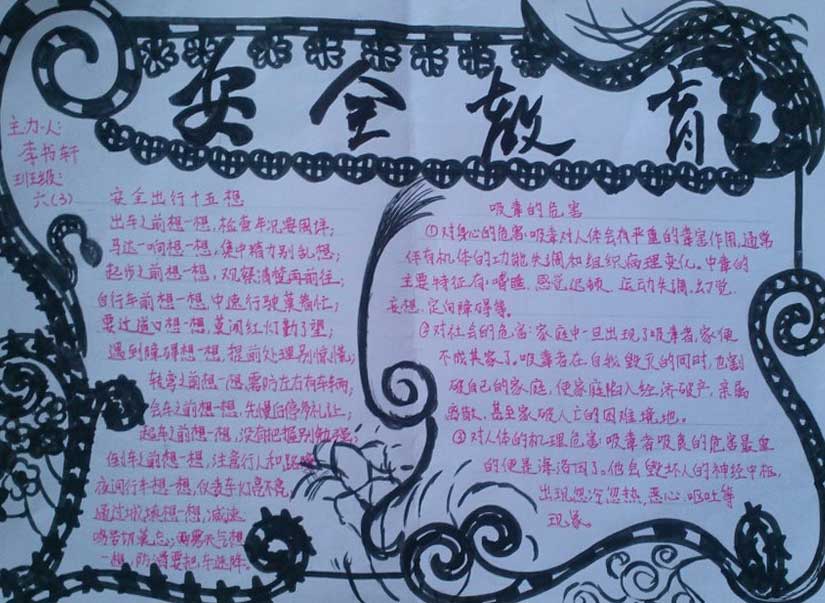 安全教育
主力人:
李书轩
班级:
六(3)
安全出行十五想
出车之前想一想,检查车况要周详;
马达一响想一想,集中精力别乱想;
起步之前想一想,观察清楚再前往;
自行车前想一想,中速行驶莫着忙;
要过道口想一想,莫闯红灯勤了望;
遇到障碍想一想,提前处理别惊慌;
转弯之前想一想,需防左右有车辆;
会车之前想一想,先慢后停多礼让;
超车之前想一想,没有把握别勉强;
倒车之前想一想,注意行人和
夜间行车想一想,仪表车灯亮不亮;
通过城镇想一想,减速
鸣号切莫忘;雨雾天气想
一想,防滑要把车速降。
吸毒的危害
①对身心的危害:吸毒对人体会有严重的毒害作用,通常
伴有机体的功能失调和组织病理变化。中毒的
主要特征有:嗜睡、感觉迟顿、运动失调、幻觉、
妄想、定向障碍等。
②对社会的危害:家庭中一旦出现了吸毒者,家便
不成其家了。吸毒者在自我毁灭的同时,也割
破自己的家庭,使家庭陷入经济破产、亲属
离散、甚至家破人亡的困难境地。
③对人体的机理危害:吸毒者吸食的危害最
的便是海洛因了。他会毁坏人的神经中枢,
出现忽冷忽热、恶心、呕吐等
现象。